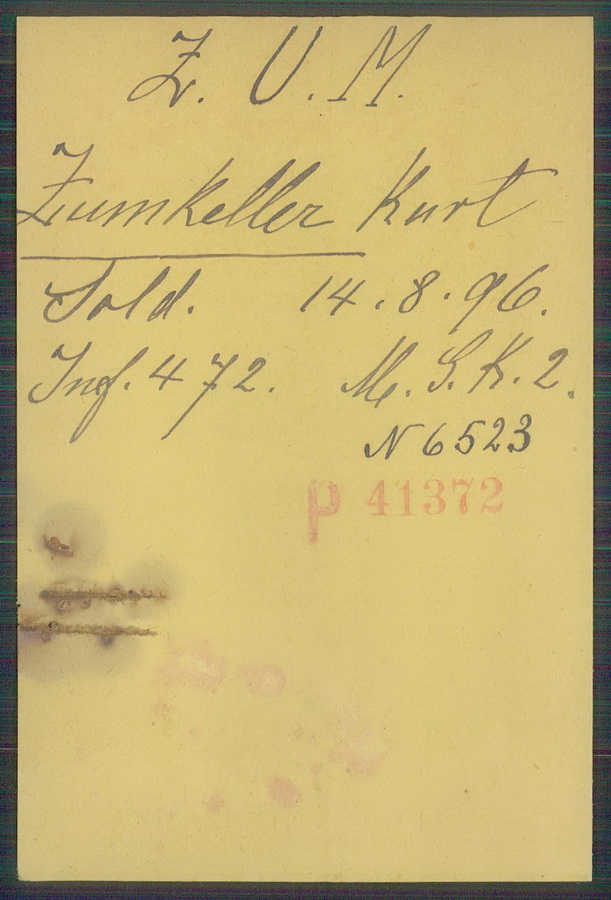 Z. U. M.
Zumkeller Kurt
Sold. 14.8.96.
Inf. 472. M.G.K.2.
N 6523
P 41372